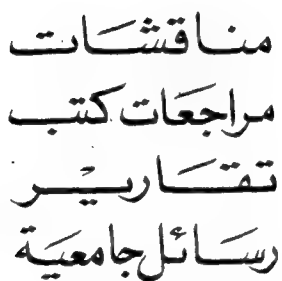 مناقشات
مراجعات كتب
تقارير
رسائل جامعية